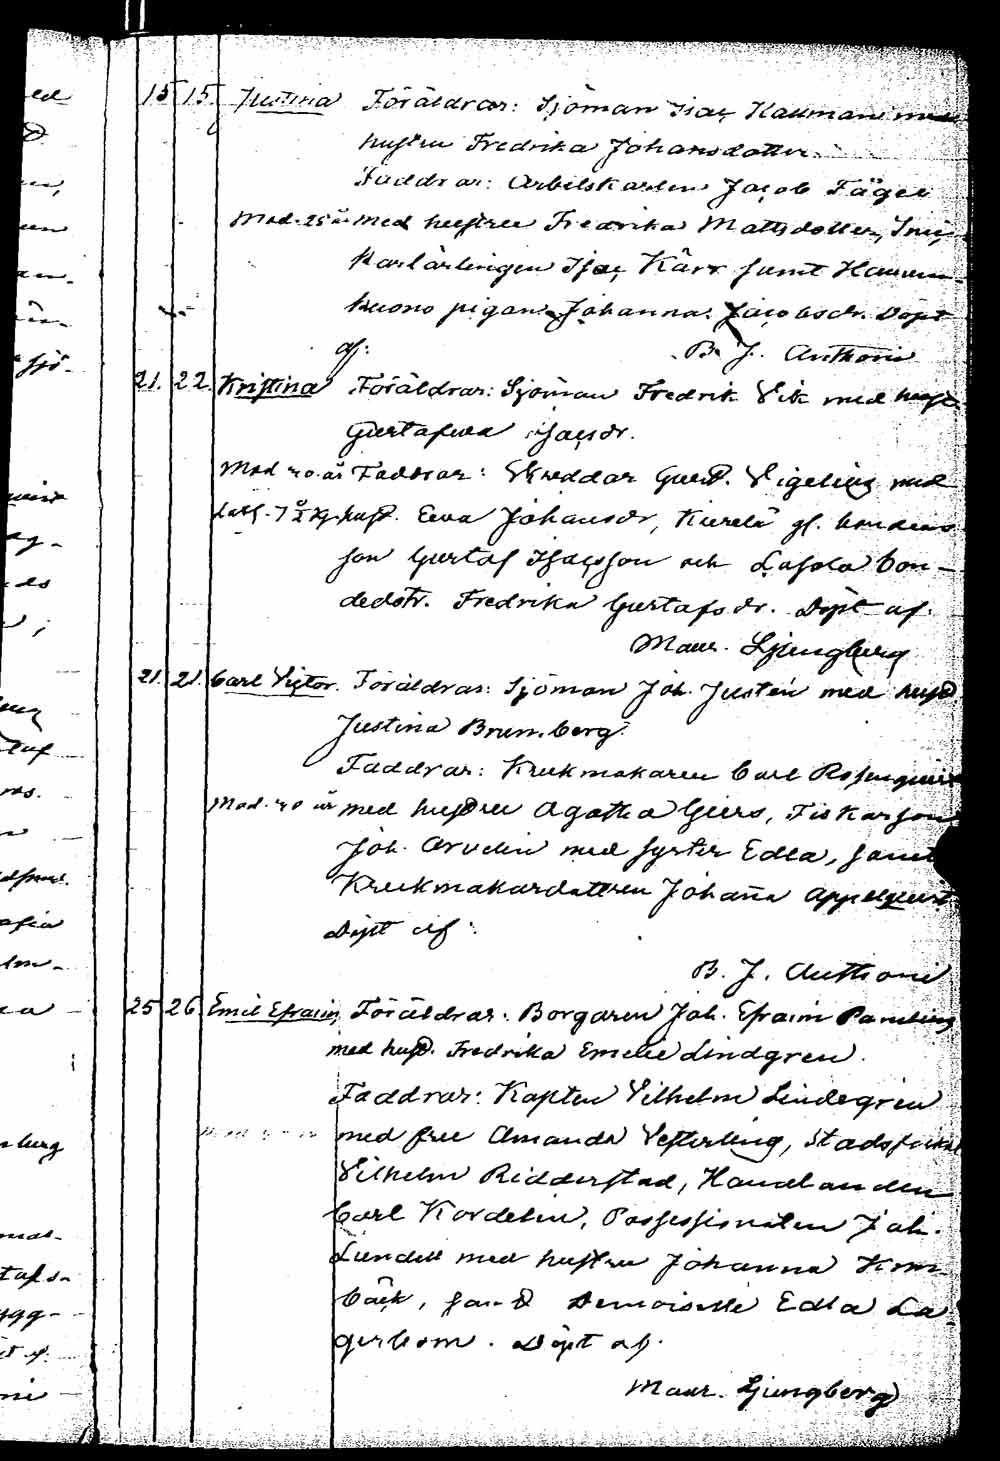 15 15. Justina Föräldrar: Sjöman Isac Hauman med
hustru Fredrika Johansdotter.
Faddrar: Arbetskarlen Jacob Täger
Mod. 25 år med hustru Fredrika Mattsdotter,
karlärlingen Isac Kärr samt
pigan Johanna Jacobsdr. Döpt
af: B. J. Anthoni
21. 22. Kristina Föräldrar: Sjöman Fredrik Vik med hust.
Gustafva Isacsdr.
Mod 40 år Faddrar: Skräddar Gust. Vigeling med
hust. Eeva Johansdr, Kurela gl. bondens
son Gustaf Isacsson och Lassila bon-
dedotr. Fredrika Gustafsdr. Döpt af.
Maur. Ljungberg
21. 21. Carl Victor. Föräldrar: Sjöman Joh. Justén med hust.
Justina Brumberg.
Faddrar: Krukmakaren Carl Rosenquist
Mod. 40 år med hustru Agatha Giers, Fiskarson
Joh. Arvelin med syster Edla, samt
Krukmakardottren Johanna Appelquist
Döpt af:
B. J. Anthoni
25 26 Emil Efraim, Föräldrar: Borgaren Joh. Efraim Pameling
med hust. Fredrika Emelie Lindgren.
Faddrar: Kapten Vilhelm Lindegren
med fru Amanda Vesterling, Stadsfiskal
Vilhelm Ridderstad, Handlanden
Carl Kordelin, Possessionaten Joh.
Lundell med hustru Johanna Korn-
bäck, samt Demoiselle Edla La-
gerbom. Döpt af.
Maur. Ljungberg